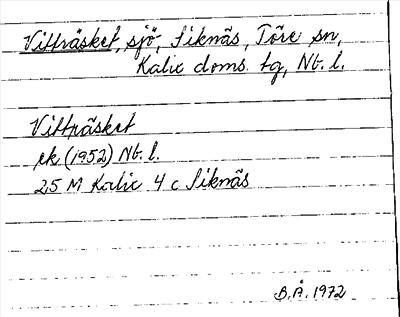 Vitträsket, sjö, Siknäs, Töre sn,
Kalix doms. tg, Nb. l.
Vitträsket
ek (1952) Nb. l.
25 M Kalix 4 c Siknäs
B.Å. 1972